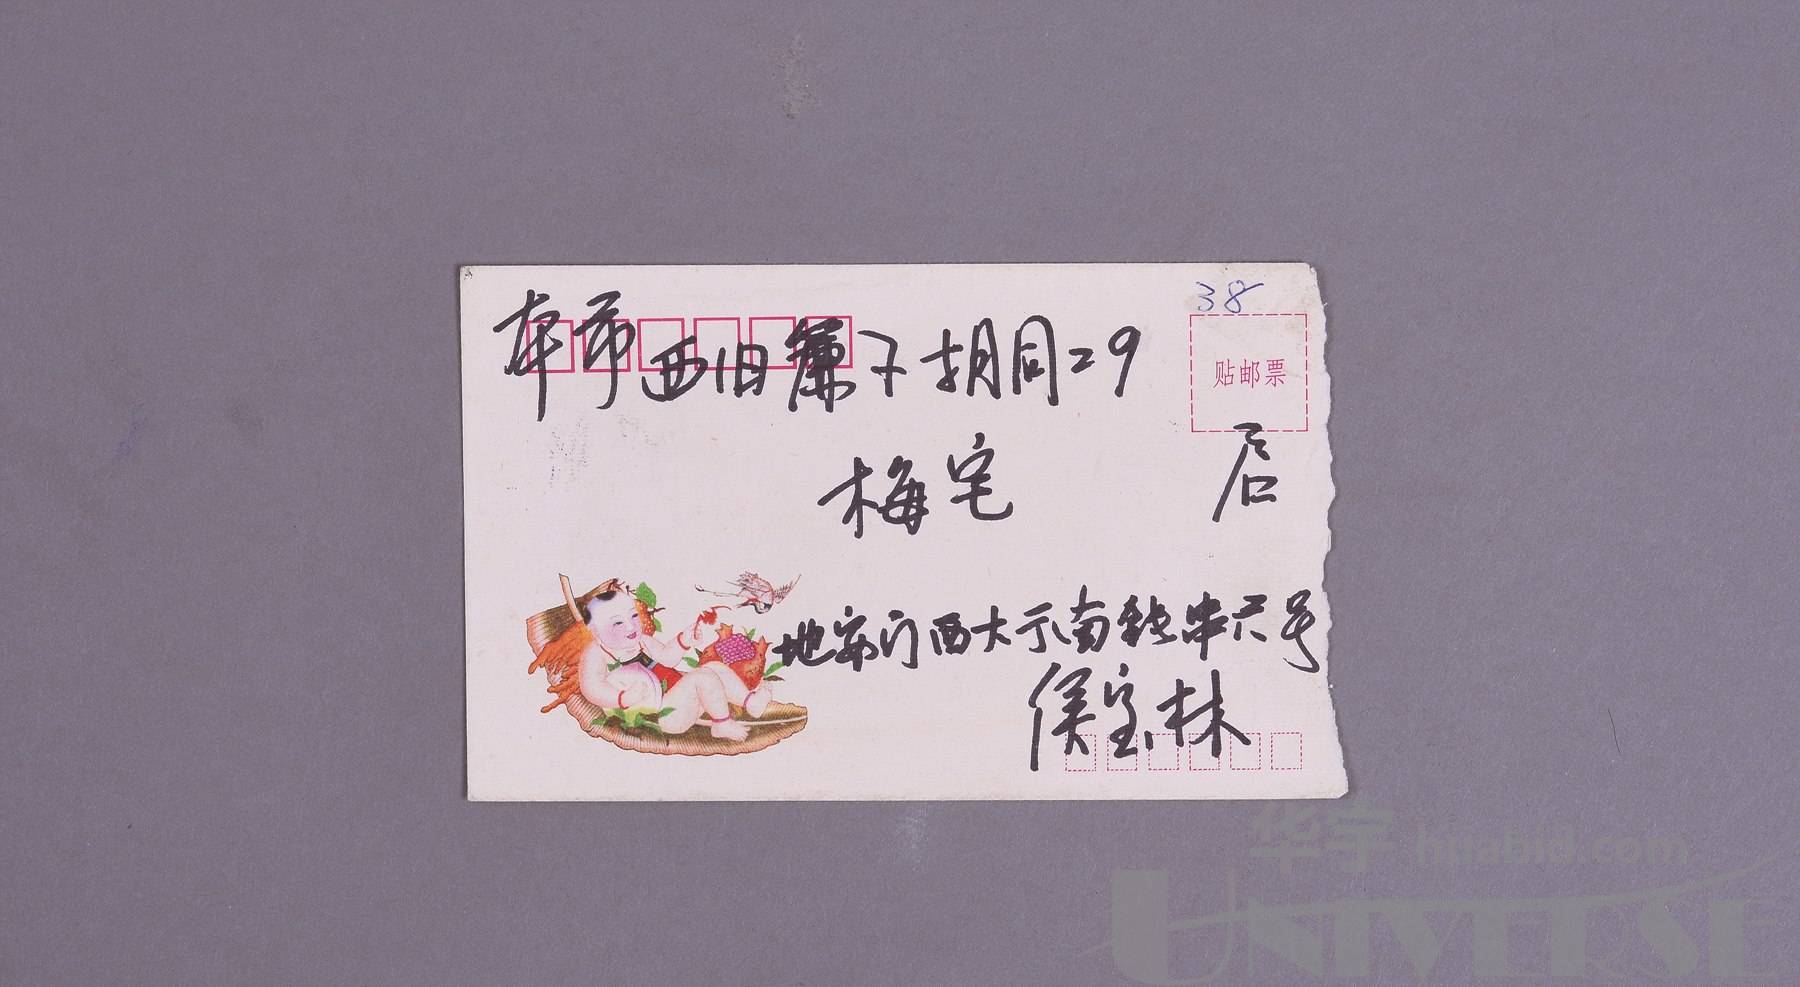 38
本市西旧簾子胡同29
贴邮票
后
梅宅
地安门西大示南鞋串六号
侯宝林
华宇 hnabid.com
UNIVERSE